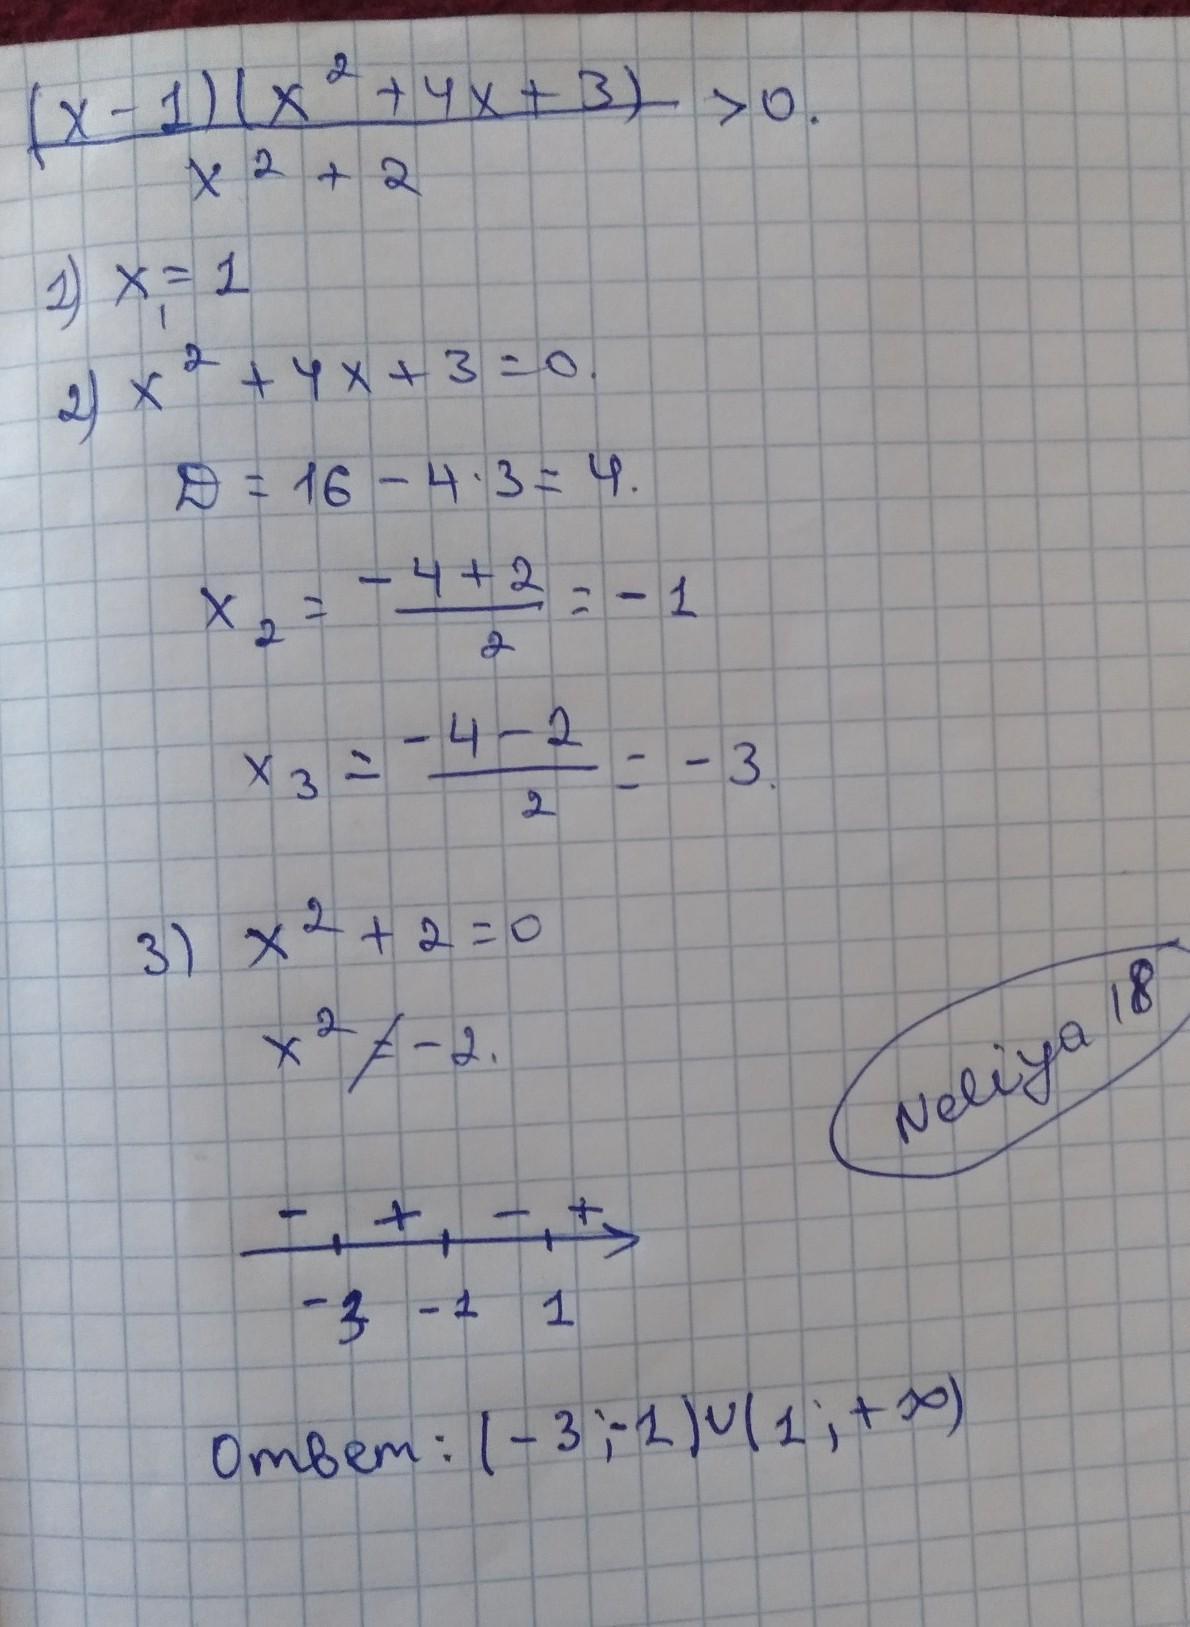 (x-1)(x²+4x+3) >0.
x²+2
1) x₁=1
2) x²+4x+3=0.
D=16-4·3=4.
x₂=
-4+2
2
=-1
x₃=
-4-2
2
=-3.
3) x²+2=0
x²≠-2.
Neliya 18
- + - +
-3 -1 1
Ответ: (-3;-1)∪(1;+∞)